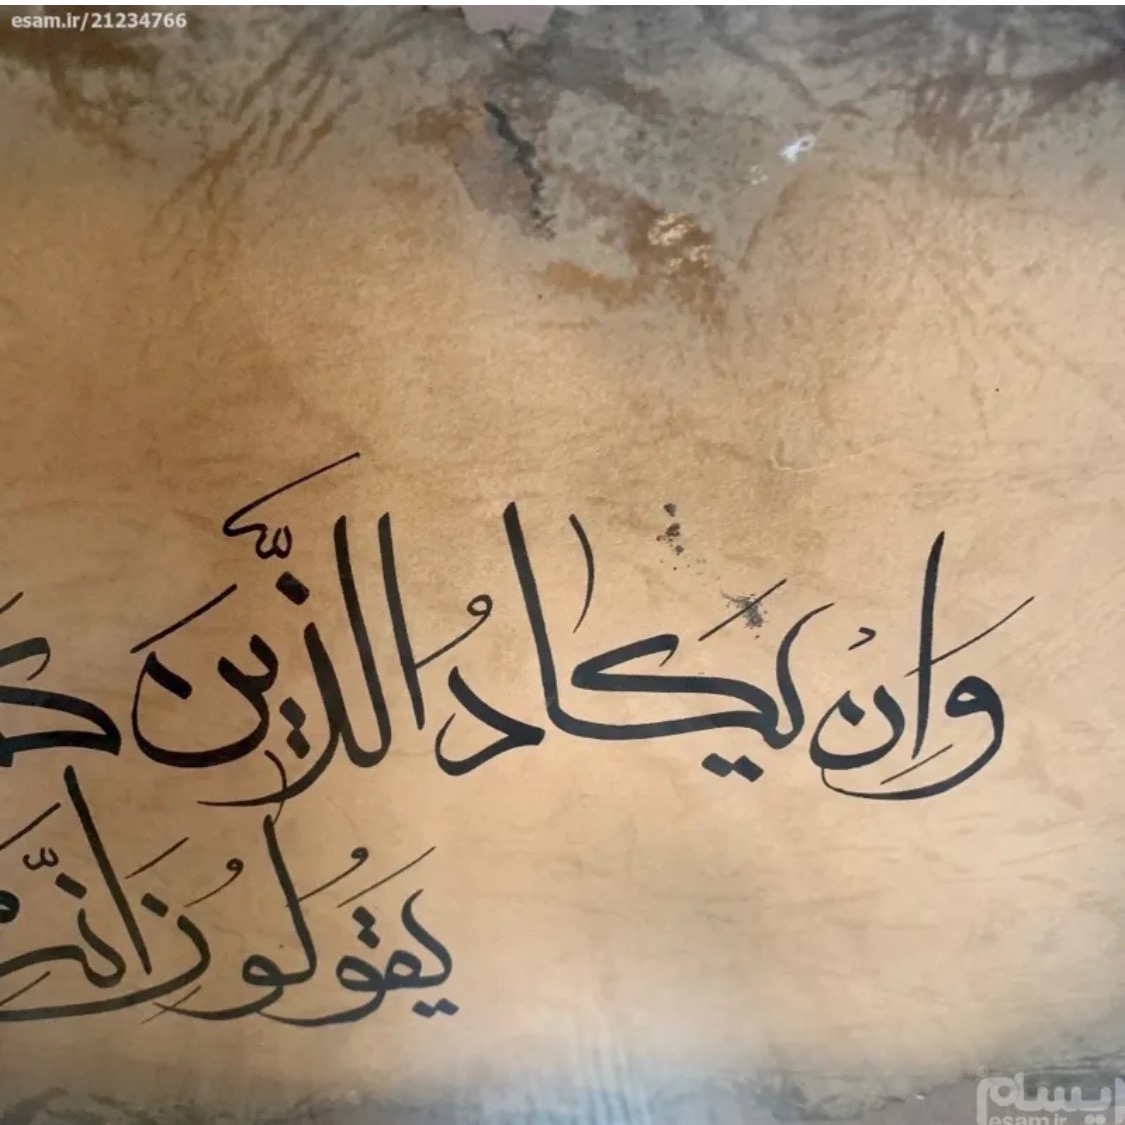 esam.ir/21234766
وَاِنْ يَكَادُ الَّذِّينَ
يَقُولُونَ
ایسام
esam.ir